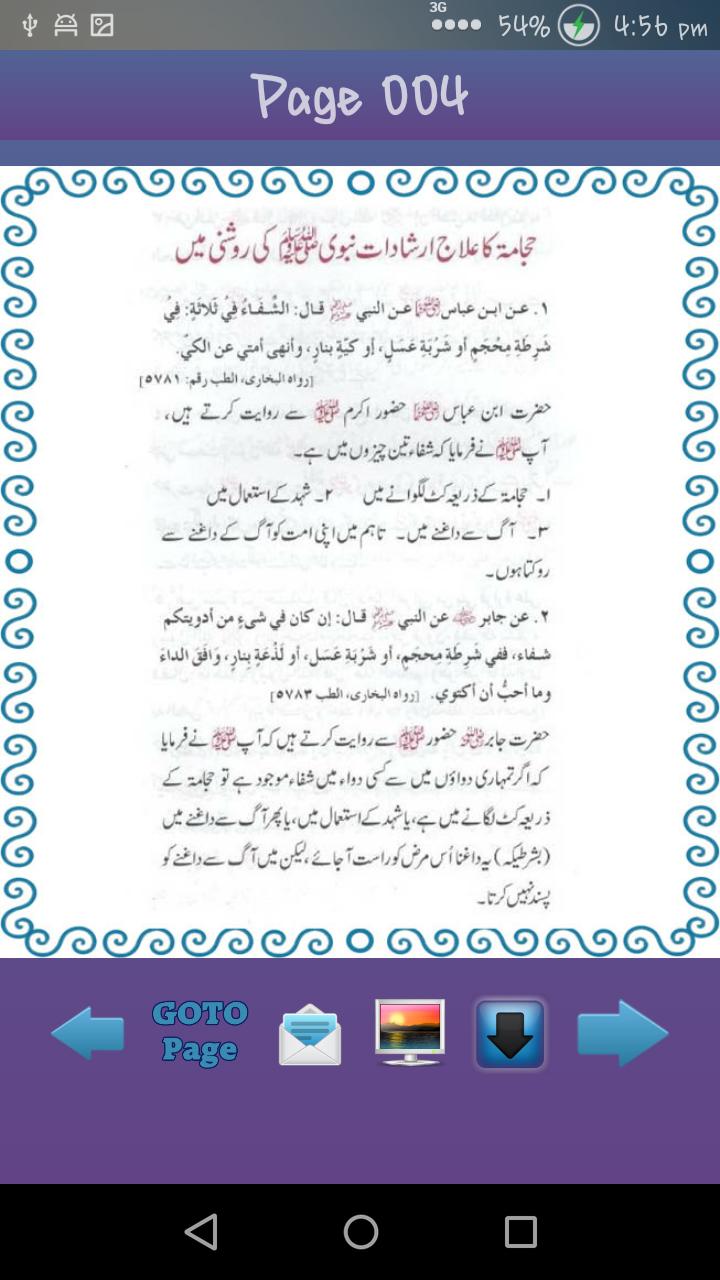 3G
54% 4:56 pm
Page 004
حجامۃ کا علاج ارشادات نبوی ﷺ کی روشنی میں
١. عـن ابـن عباس رضی اللہ عنہما عـن النبي ﷺ قـال: الشِّـفَـاءُ فِيْ ثَلاثَةٍ: فِيْ
شَرطَةِ مِحْجَمٍ أو شَرْبَةِ عَسَلٍ، أو كيّةٍ بنارٍ، وأنهى أمتي عن الكيّ.
[رواه البخاری، الطب رقم: ٥٧٨١]
حضرت ابن عباس رضی اللہ عنہما حضور اکرم ﷺ سے روایت کرتے ہیں،
آپ ﷺ نے فرمایا کہ شفاء تین چیزوں میں ہے۔
۱۔ حجامۃ کے ذریعہ کٹ لگوانے میں ۲۔ شہد کے استعمال میں
۳۔ آگ سے داغنے میں۔ تاہم میں اپنی امت کو آگ کے داغنے سے
روکتا ہوں۔
٢. عن جابر رضی اللہ عنہ عن النبي ﷺ قـال: إن كان في شيءٍ من أدويتكم
شـفاء، ففي شَرطَةِ مِحجَمٍ، أو شَرْبَةِ عَسَل، أو لَذْعَةٍ بنارٍ، وَافَقَ الداءَ
وما أحبُّ أن أكتوي. [رواه البخاری، الطب ٥٧٨٣]
حضرت جابر رضی اللہ عنہ حضور ﷺ سے روایت کرتے ہیں کہ آپ ﷺ نے فرمایا
کہ اگر تمہاری دواؤں میں سے کسی دواء میں شفاء موجود ہے تو حجامۃ کے
ذریعہ کٹ لگانے میں ہے، یا شہد کے استعمال میں، یا پھر آگ سے داغنے میں
(بشرطیکہ) یہ داغنا اُس مرض کو راست آجائے، لیکن میں آگ سے داغنے کو
پسند نہیں کرتا۔
GOTO
Page